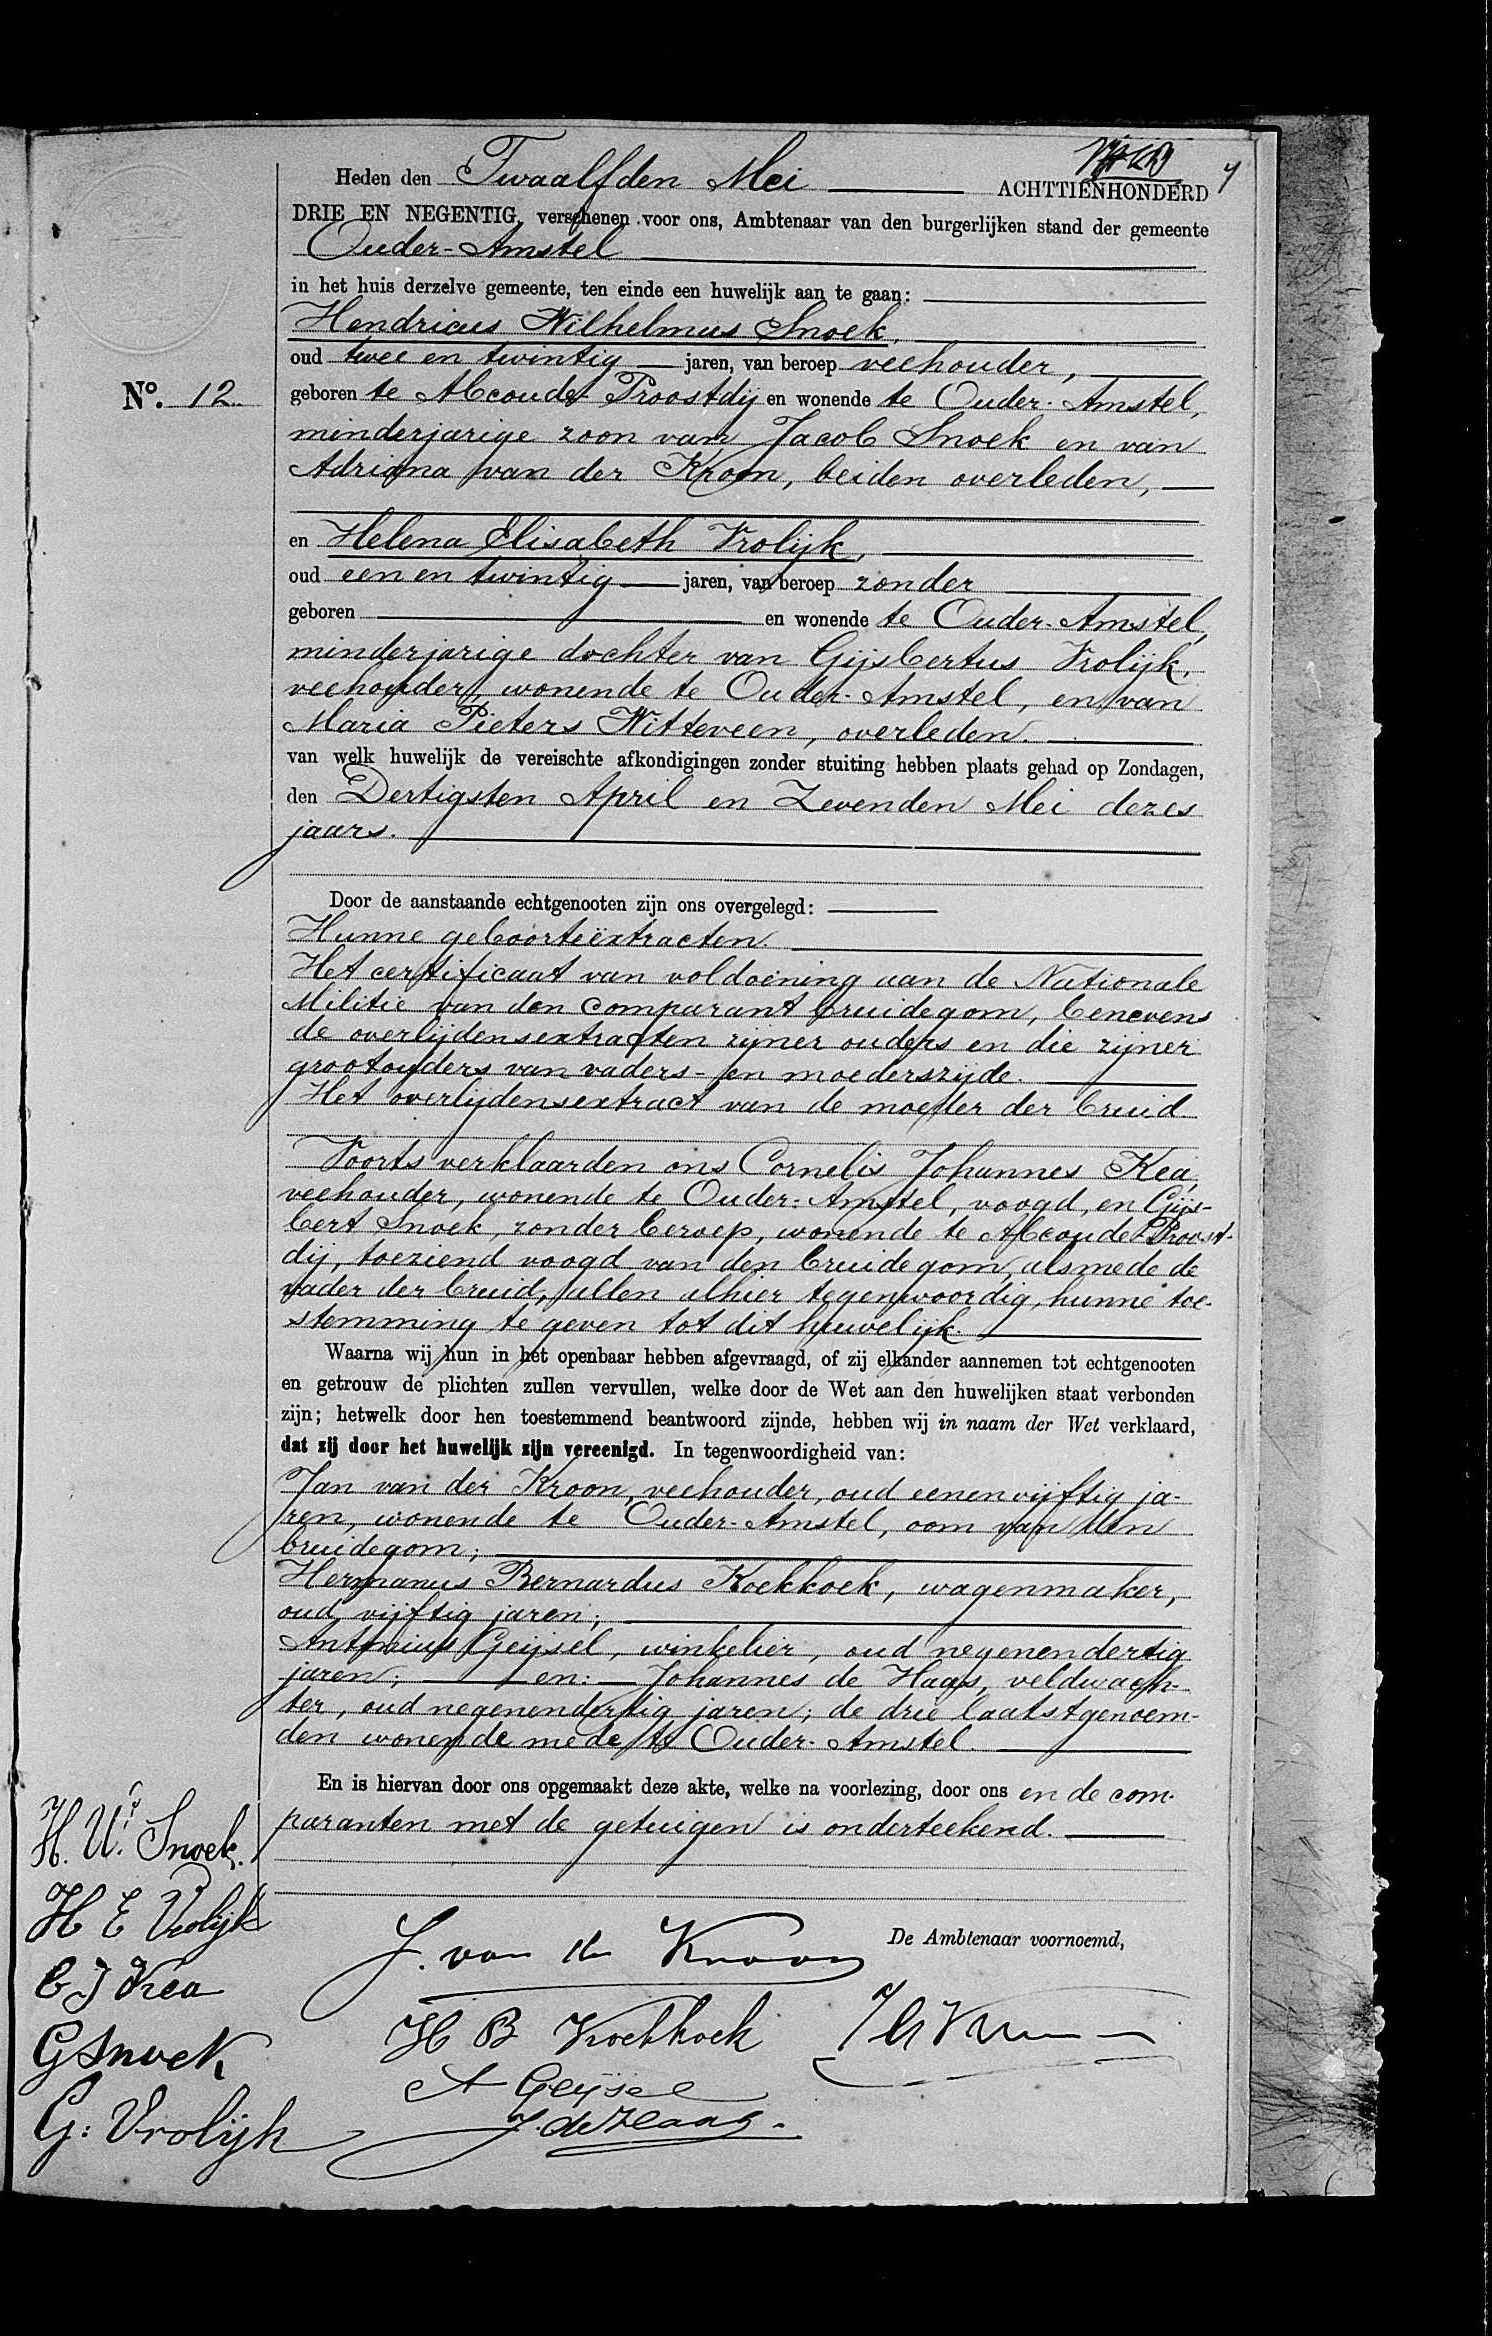 7
Heden den Twaalfden Mei ACHTTIENHONDERD
DRIE EN NEGENTIG, verschenen voor ons, Ambtenaar van den burgerlijken stand der gemeente
Ouder-Amstel
in het huis derzelve gemeente, ten einde een huwelijk aan te gaan:
Hendricus Wilhelmus Snoek,
oud twee en twintig jaren, van beroep veehouder,
No. 12.
geboren te Abcoude Proostdij en wonende te Ouder-Amstel,
minderjarige zoon van Jacob Snoek en van
Adriana van der Kroon, beiden overleden,
en Helena Elisabeth Vrolijk,
oud een en twintig jaren, van beroep zonder
geboren en wonende te Ouder-Amstel,
minderjarige dochter van Gijsbertus Vrolijk,
veehouder, wonende te Ouder-Amstel, en van
Maria Pieters Witteveen, overleden.
van welk huwelijk de vereischte afkondigingen zonder stuiting hebben plaats gehad op Zondagen,
den Dertigsten April en Zevenden Mei dezes
jaars.
Door de aanstaande echtgenooten zijn ons overgelegd:
Hunne geboorteëxtracten.
Het certificaat van voldoening aan de Nationale
Militie van den comparant bruidegom, benevens
de overlijdensextracten zijner ouders en die zijner
grootouders van vaders- en moederszijde.
Het overlijdensextract van de moeder der bruid
Voorts verklaarden ons Cornelis Johannes Kea,
veehouder, wonende te Ouder-Amstel, voogd, en Gijs-
bert Snoek, zonder beroep, wonende te Abcoude Proost-
dij, toeziend voogd van den bruidegom, alsmede de
vader der bruid, allen alhier tegenwoordig, hunne toe-
stemming te geven tot dit huwelijk.
Waarna wij hun in het openbaar hebben afgevraagd, of zij elkander aannemen tot echtgenooten
en getrouw de plichten zullen vervullen, welke door de Wet aan den huwelijken staat verbonden
zijn; hetwelk door hen toestemmend beantwoord zijnde, hebben wij in naam der Wet verklaard,
dat zij door het huwelijk zijn vereenigd. In tegenwoordigheid van:
Jan van der Kroon, veehouder, oud eenenvijftig ja-
ren, wonende te Ouder-Amstel, oom van den
bruidegom;
Hermanus Bernardus Koekkoek, wagenmaker,
oud vijftig jaren;
Antonius Geijsel, winkelier, oud negenendertig
jaren; en: Johannes de Haas, veldwach-
ter, oud negenendertig jaren; de drie laatstgenoem-
den wonende mede te Ouder-Amstel.
En is hiervan door ons opgemaakt deze akte, welke na voorlezing, door ons en de com-
paranten met de getuigen is onderteekend.
H. W. Snoek.
H E Vrolijk
C J Kea
G Snoek
G: Vrolijk
J. van der Kroon
H B Koekkoek
A Geijsel
J. de Haas
De Ambtenaar voornoemd,